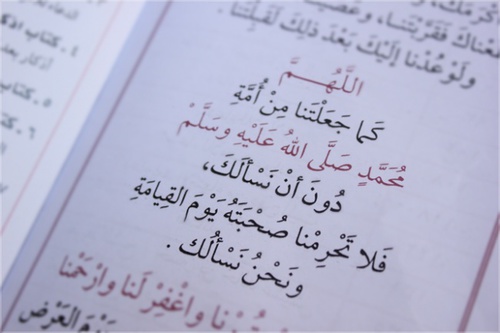 أكرمك، وعصي
عناك فقربتنا،
ولو عدنا إليك بعد ذلك لقبلتنا.
اللَّهُمَّ
كَما جَعَلْتَنا مِنْ أُمَّةِ
مُحَمَّدٍ صَلَّى اللهُ عَلَيْهِ وسَلَّمْ
دُونَ أنْ نَسْألَكَ،
فَلا تَحْرِمْنا صُحْبَتَهُ يَوْمَ القِيامَةِ
ونَحْنُ نَسْألُك .
واغْفِرْ لَنا وارْحَمْنا
يَوْمَ العَرْضِ
٤. كتاب
أذكار
٥. كتاب
٦. كتاب